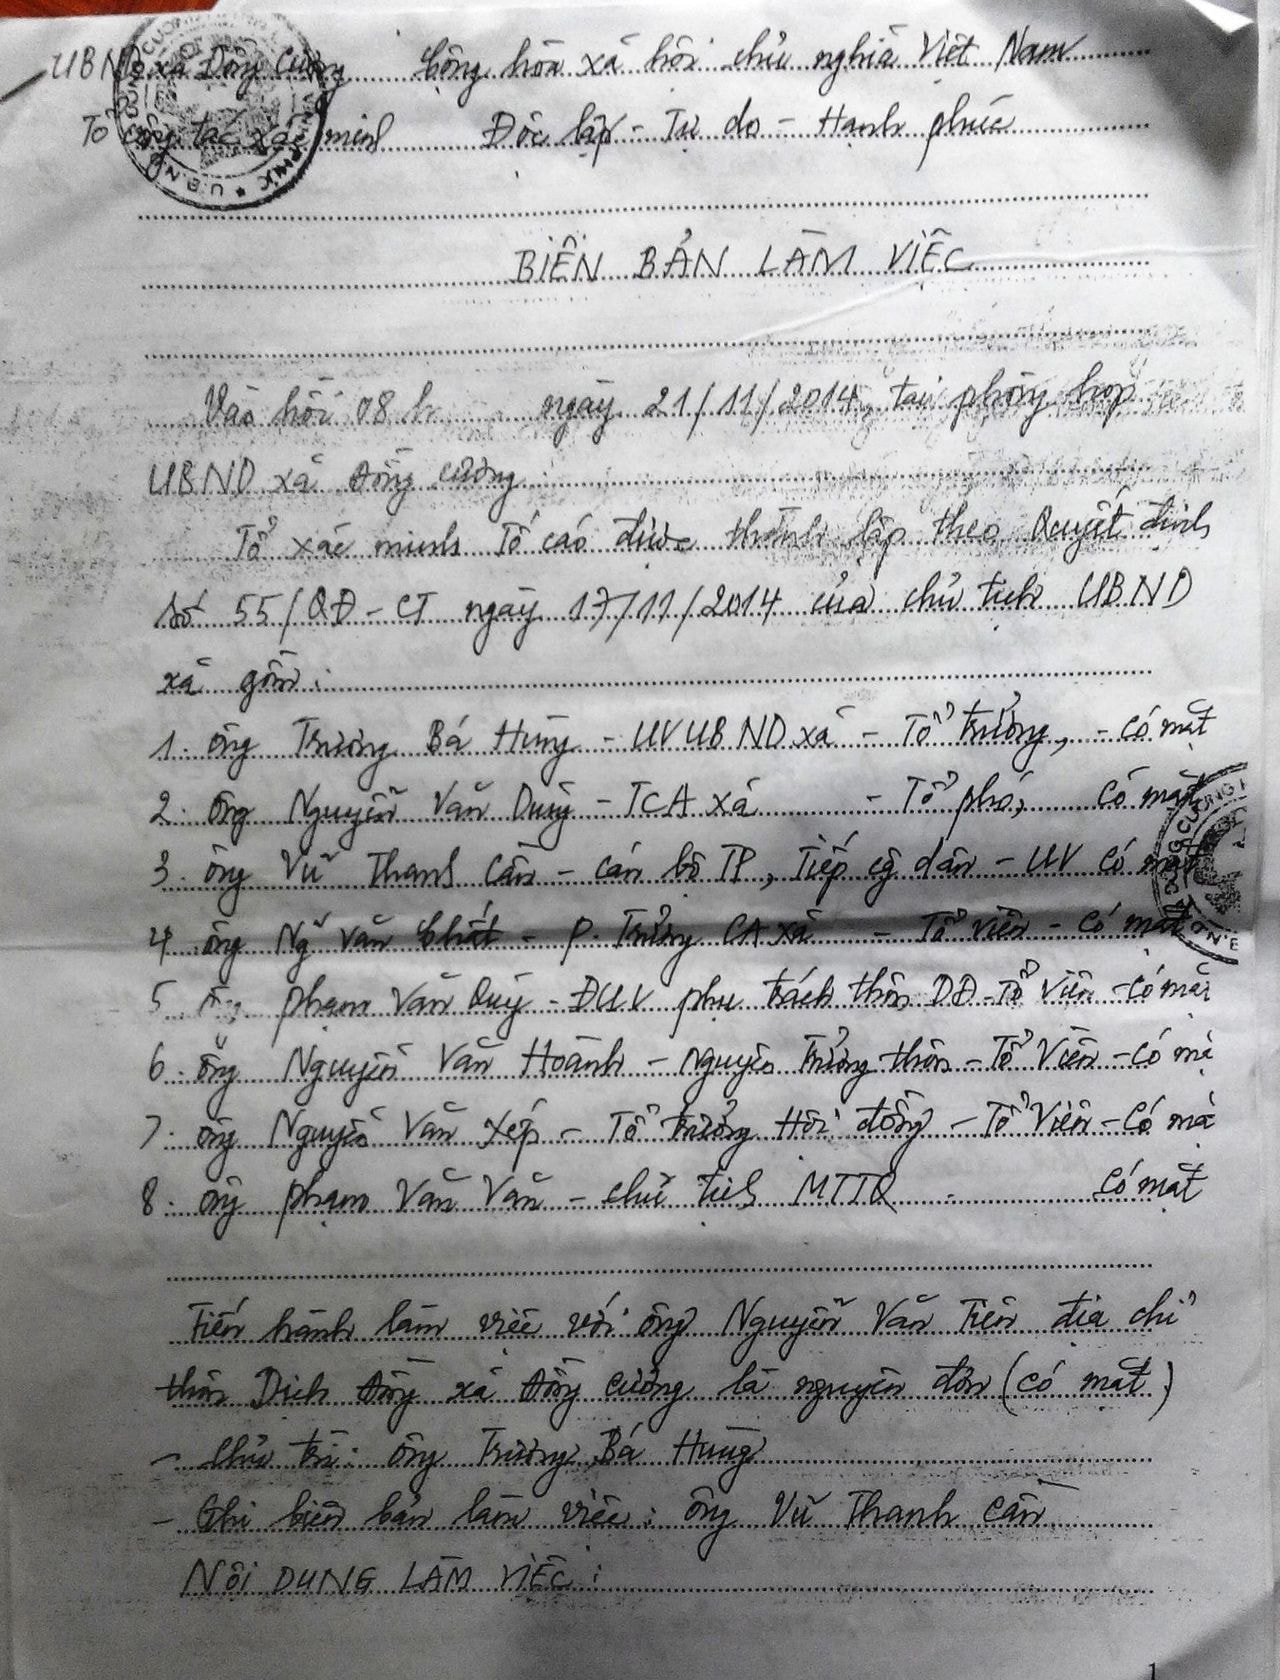 UBND xã Đồng Cường Cộng hòa xã hội chủ nghĩa Việt Nam
Tổ công tác xác minh Độc lập - Tự do - Hạnh phúc
BIÊN BẢN LÀM VIỆC
Vào hồi 08 h ngày 21/11/2014, tại phòng họp
UBND xã Đồng Cường.
Tổ xác minh Tố cáo được thành lập theo Quyết định
số 55/QĐ-CT ngày 17/11/2014 của chủ tịch UBND
xã gồm:
1. ông Trương Bá Hùng - UVUBND xã - Tổ trưởng, - có mặt
2. ông Nguyễn Văn Dũng - TCA xã - Tổ phó, có mặt
3. ông Vũ Thanh Cần - cán bộ TP, Tiếp cg dân - UV có mặt
4. ông Ng Văn Chất - P. Trưởng CA xã - Tổ viên - có mặt
5. ông Phạm Văn Quý - ĐUV phụ trách thôn DĐ - Tổ Viên - có mặ
6. ông Nguyễn Văn Hoành - Nguyên Trưởng thôn - Tổ Viên - có mặ
7. ông Nguyễn Văn Xếp - Tổ trưởng Hội đồng - Tổ Viên - có mặ
8. ông Phạm Văn Văn - chủ tịch MTTQ - có mặt
Tiến hành làm việc với ông Nguyễn Văn Tiên địa chỉ
thôn Dịch Đồng xã Đồng Cường là nguyên đơn (có mặt)
- Chủ trì: ông Trương Bá Hùng
- Ghi biên bản làm việc: ông Vũ Thanh Cần
NỘI DUNG LÀM VIỆC:
1